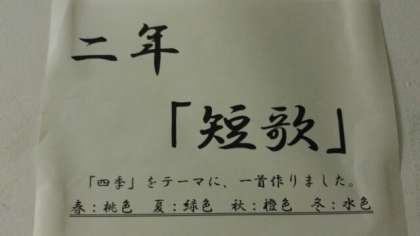 二年
「短歌」
「四季」をテーマに、一首作りました。
春：桃色　夏：緑色　秋：橙色　冬：水色